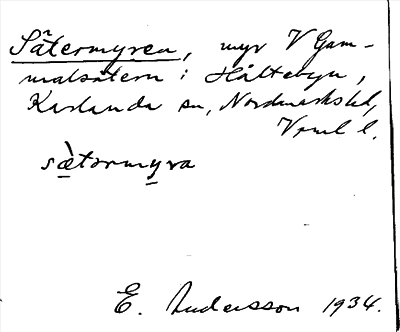 Sätermyren, myr V Gam-
malsätern i Håltebyn,
Karlanda sn, Nordmarks hd,
Vrml l.
sæ̀tərmyra
E. Andersson 1934.